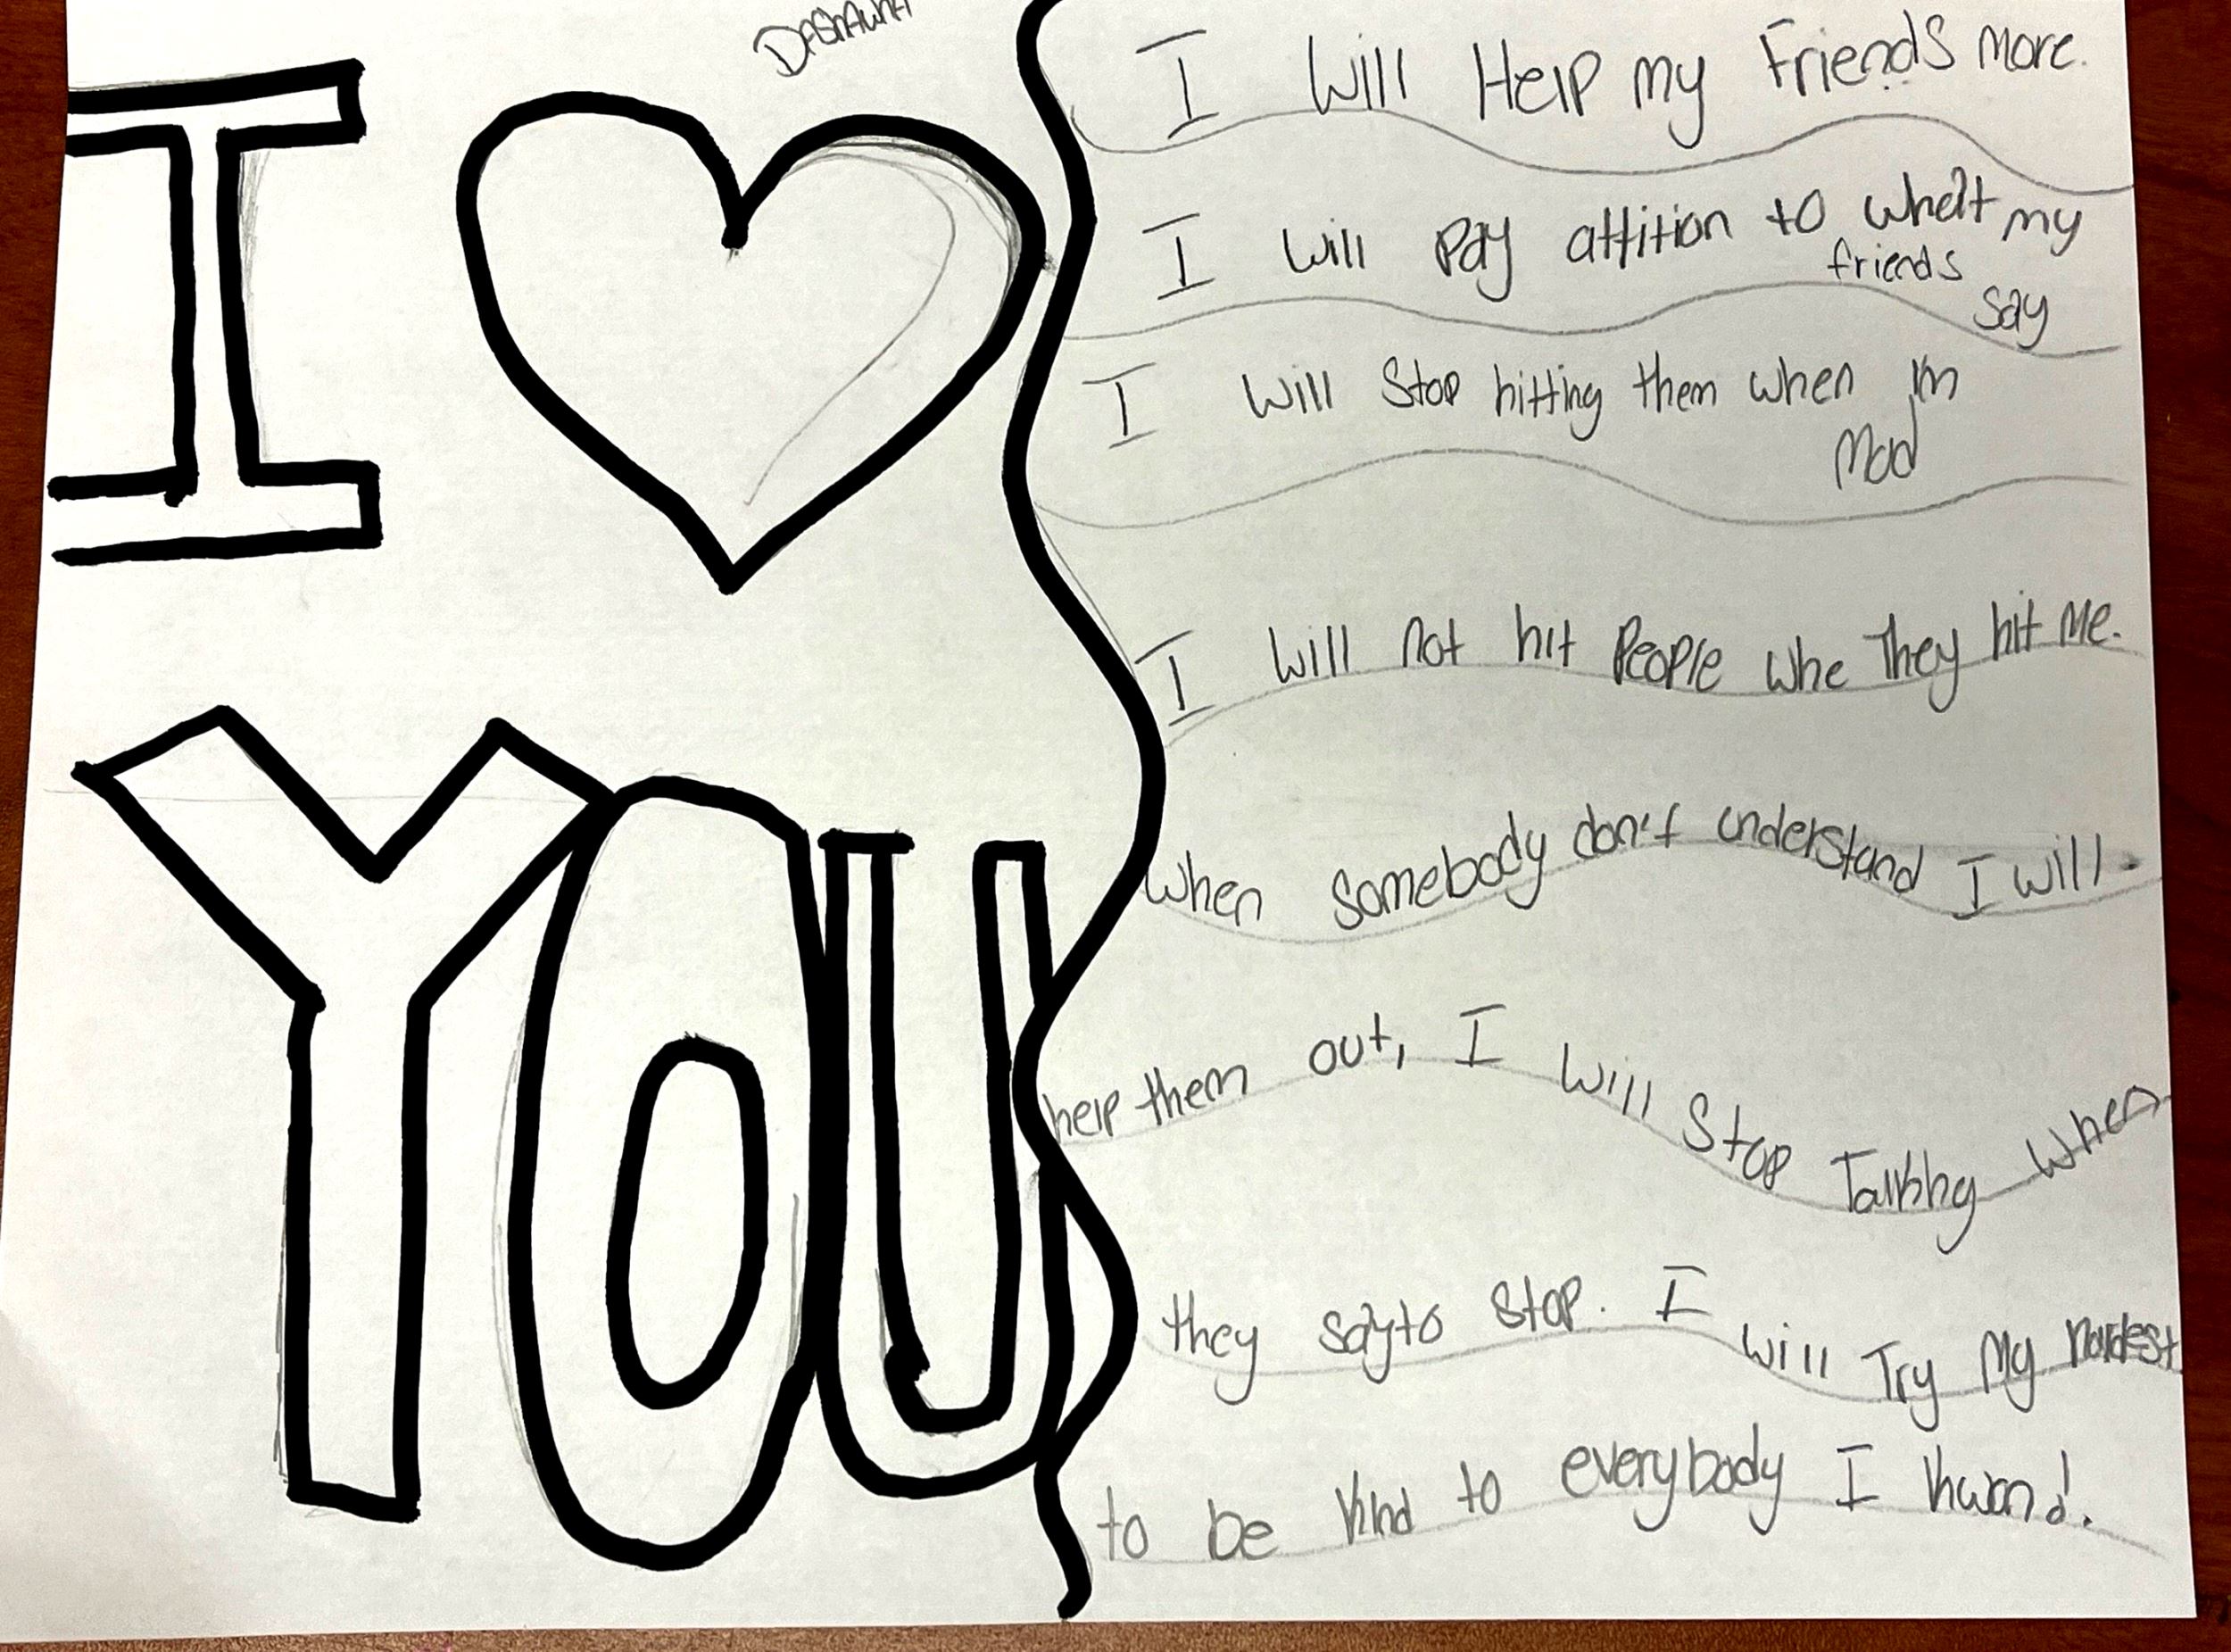 DaShawna
I
YOU
I will Help my Friends more.
I will Pay attition to whatt my
friends
say
I will Stop hitting them when I'm
Mad
I will not hit People whe They hit me.
when somebody don't understand I will.
help them out, I will Stop Talking when
they say to Stop. I will Try my hardest
to be kind to everybody I